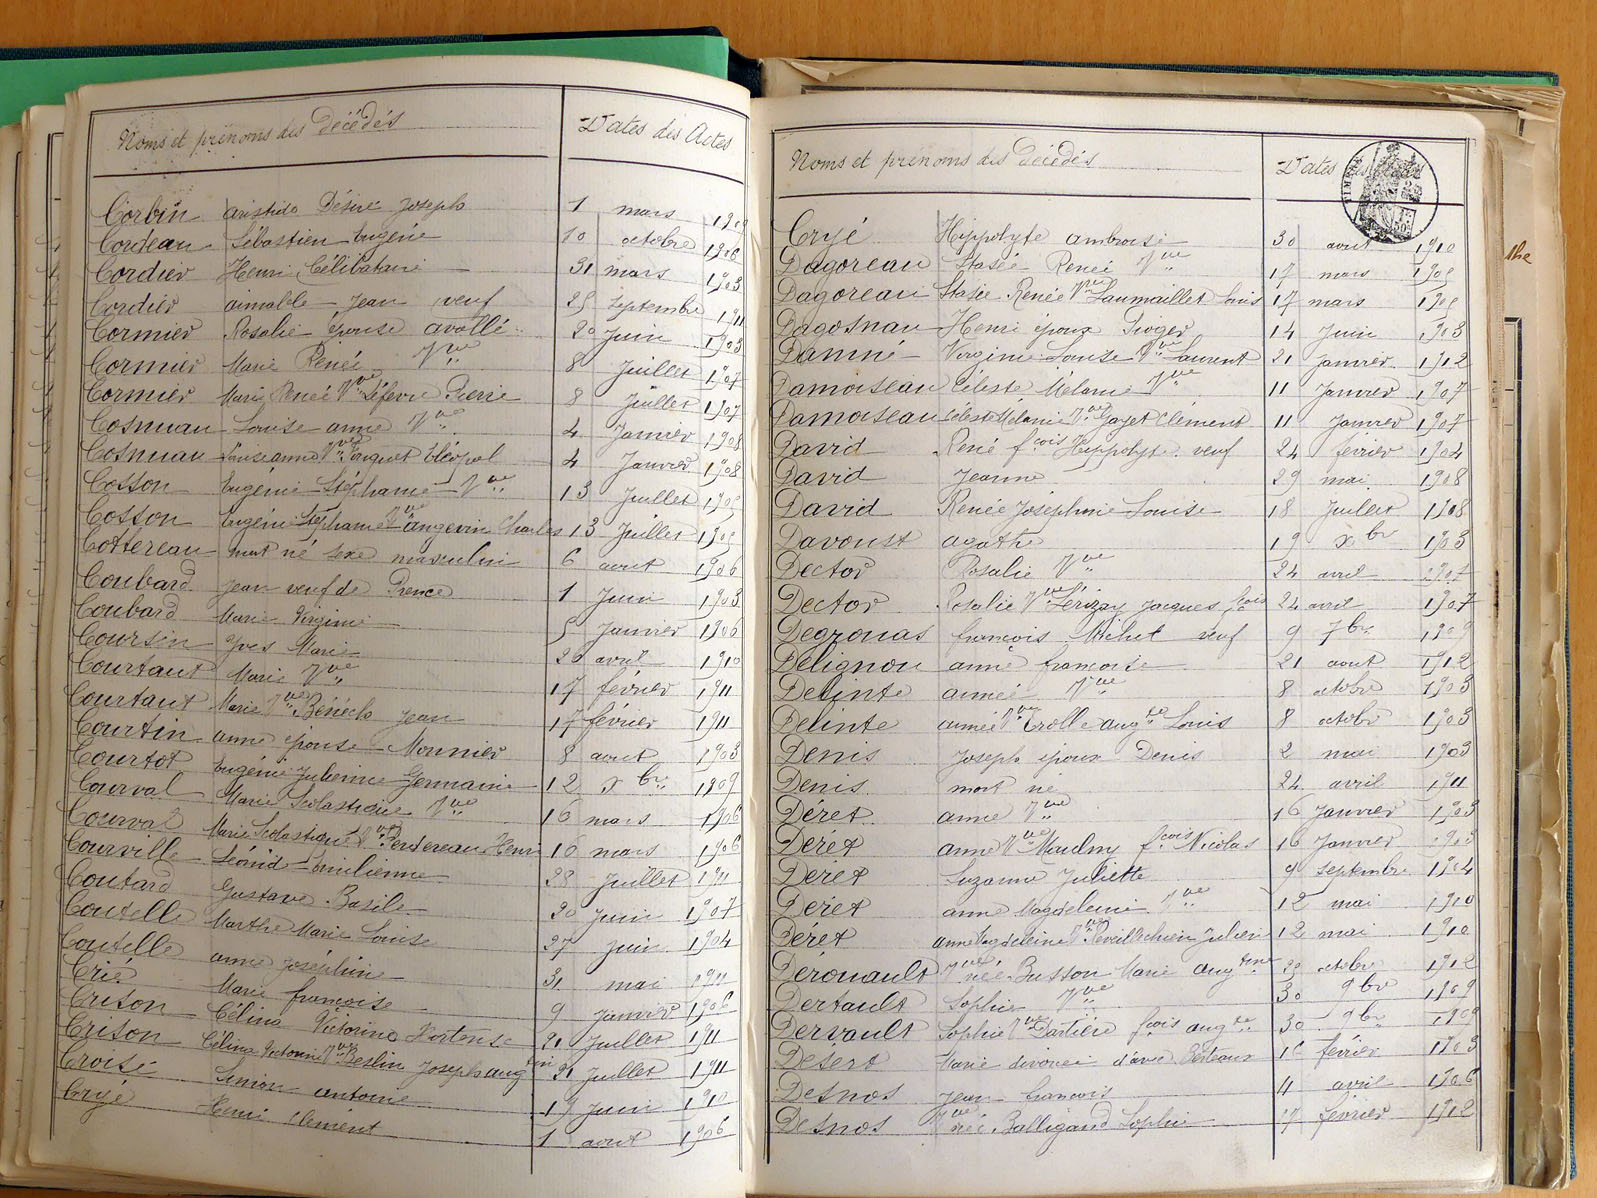 Noms et prénoms des Décédés Dates des Actes
Corbin Aristide Désiré Joseph 1 mars 1909
Cordeau Sébastien Eugène 10 octobre 1906
Cordier Henri Célibataire 31 mars 1903
Cordier aimable Jean veuf 25 septembre 1911
Cormier Rosalie épouse avallé 20 Juin 1903
Cormier Marie Renée Vve 8 Juillet 1907
Cormier Marie Renée Vve Lefevre Pierre 8 Juillet 1907
Cosnuau Louise anne Vve 4 Janvier 1908
Cosnuau Louise anne Vve 4 Janvier 1908
Cosson Eugénie Stéphanie Vve 13 Juillet 1905
Cosson Eugénie Stéphanie Vve angevin Charles 13 Juillet 1905
Cottereau mort né sexe masculin 6 aout 1906
Coubard Jean veuf de Prence 1 Juin 1903
Coubard Marie Virginie 5 Janvier 1906
Coursin Yves Marie 20 avril 1910
Courtaut Marie Vve 17 février 1911
Courtaut Marie Vve Bénech Jean 17 février 1911
Courtin anne épouse Monnier 8 aout 1903
Courtot Eugénie Julienne Germaine 12 xbre 1909
Courval Marie Scolastique Vve 16 mars 1906
Courval Marie Scolastique Vve Pendereau Henri 16 mars 1906
Courville Léonid Emilienne 28 Juillet 1911
Coutard Gustave Basile 20 Juin 1907
Coutelle Marthe Marie Louise 27 Juin 1904
Coutelle anne Joséphine 31 mai 1911
Crié Marie françoise 9 Janvier 1906
Crison Célina Victorine Hortense 21 Juillet 1911
Crison Célina Victorine Vve Beslin Joseph augtin 21 Juillet 1911
Croisé Simon antoine 19 Juin 1910
Cryé Henri Clément 1 aout 1906
Noms et prénoms des Décédés Dates des Actes
Cryé Hippolyte ambroise 30 aout 1910
Dagoreau Stasie Renée Vve 17 mars 1905
Dagoreau Stasie Renée Vve Laumaillet Louis 17 mars 1905
Dagosnau Henri époux Froger 14 Juin 1903
Daminé Virginie Louise Vve Laurent 21 Janvier 1912
Damoiseau Céleste Mélanie Vve 11 Janvier 1907
Damoiseau Céleste Mélanie Vve Gayet Clément 11 Janvier 1907
David René fcois Hippolyte veuf 24 février 1904
David Jeanne 29 mai 1908
David Renée Joséphine Louise 18 Juillet 1908
Davoust agathe 19 xbre 1903
Dector Rosalie Vve 24 avril 1907
Dector Rosalie Vve Lérizay Jacques fcois 24 avril 1907
Degrouas françois Michel veuf 9 7bre 1909
Délignon anne françoise 21 aout 1912
Delinte aimée Vve 8 octobre 1903
Delinte aimée Vve Trolle augte Louis 8 octobre 1903
Denis Joseph époux Denis 2 mai 1903
Denis mort né 24 avril 1911
Déret anne Vve 16 Janvier 1903
Déret anne Vve Mauduy fcois Nicolas 16 Janvier 1903
Déret Suzanne Juliette 9 septembre 1904
Déret anne Magdeleine Vve 12 mai 1910
Déret anne Magdeleine Vve Réveillechien Julien 12 mai 1910
Dérouault Vve née Busson Marie augtine 29 octobre 1912
Dertault Sophie Vve 30 9bre 1909
Dervault Sophie Vve Dartière fcois augte 30 9bre 1909
Désert Marie divorcée d'avec Berteaux 16 février 1903
Desnos Jean françois 4 avril 1906
Desnos Vve née Balligand Sophie 17 février 1912
the